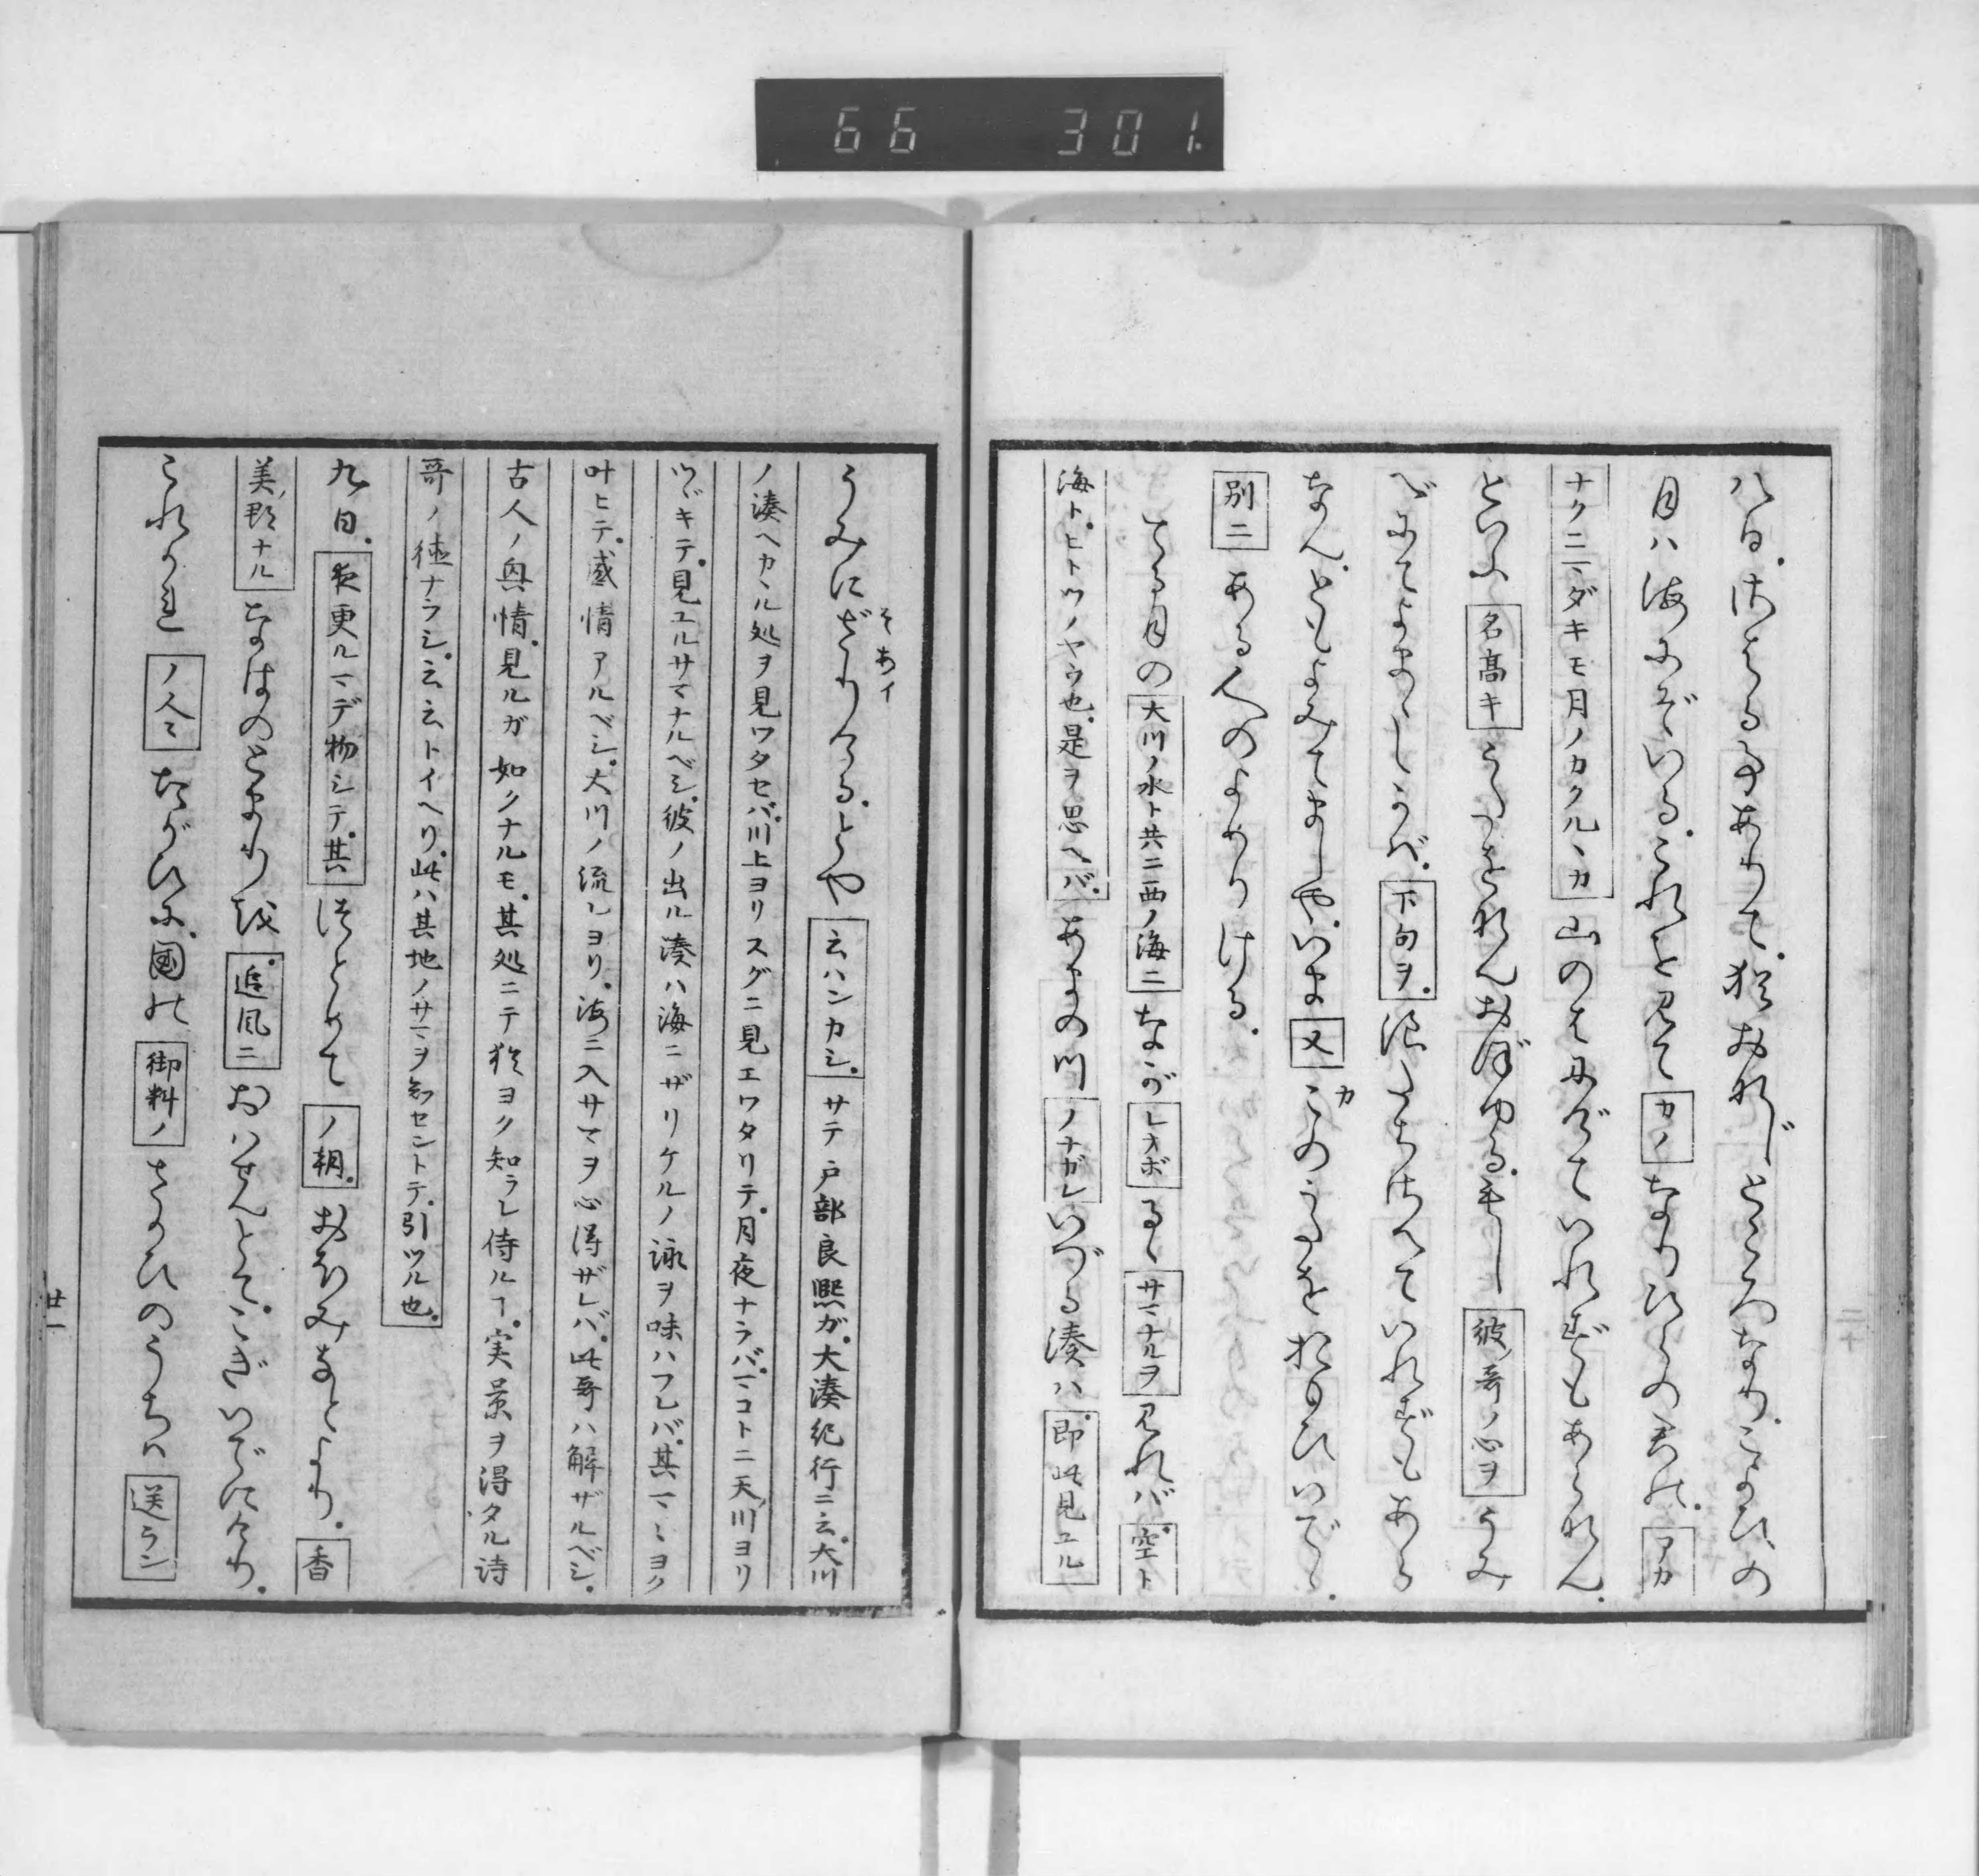 66 301.
八日。さはる事ありて。猶おなじところなり。こよひの
月ハ海にぞいる。これを見て カノ なりひらの君の。アカ
ナクニマダキモ月ノカクルヽカ 山のはにげていれずもあらなん。
といふ 名高キ うたをなんおぼゆる。もし 彼ノ哥ノ心ヲ うみ
べにてよまゝしかバ。下句ヲ。 浪たちさへていれずもあら
なん。ともよみてましや。いま 又 このうたをおもひいでゝ。
カ
別ニ ある人のよめりける。
てる月の 大川ノ水ト共ニ西ノ海ニ ながレオボるゝ サマナルヲ 見れバ。空ト
海ト。ヒトツノヤウ也。是ヲ思ヘバ。あまの川 ノナガレ いづる湊ハ。即此見エル
うみにざりける。とや 云ハンカシ。サテ戸部良熈ガ。大湊紀行ニ云。大川
そあイ
ノ湊ヘカヽル処ヲ見ワタセバ。川上ヨリスグニ見エワタリテ。月夜ナラバ。マコトニ天ノ川ヨリ
ツヾキテ。見エルサマナルベシ。彼ノ出ル湊ハ海ニザリケルノ詠ヲ味ハフレバ。其マヽヨク
叶ヒテ。感情アルベシ。大川ノ流レヨリ。海ニ入サマヲ心得ザレバ。此哥ハ解ザルベシ。
古人ノ興情。見ルガ如クナルモ。其処ニテ猶ヨク知ラレ侍ルヿ。実景ヲ得タル詩
哥ノ徳ナラシ。云云トイヘリ。此ハ其地ノサマヲ知セントテ。引ツル也。
九日。夜更ルマデ物シテ。其 つとめて ノ朝。おほみなとより。香
美ノ郡ナル なはのとまりを 追風ニ おはせんとて。こぎいでにけり。
これかれ ノ人々 たがひに。國の 御料ノ さかひのうちハ 送ラン
廿一